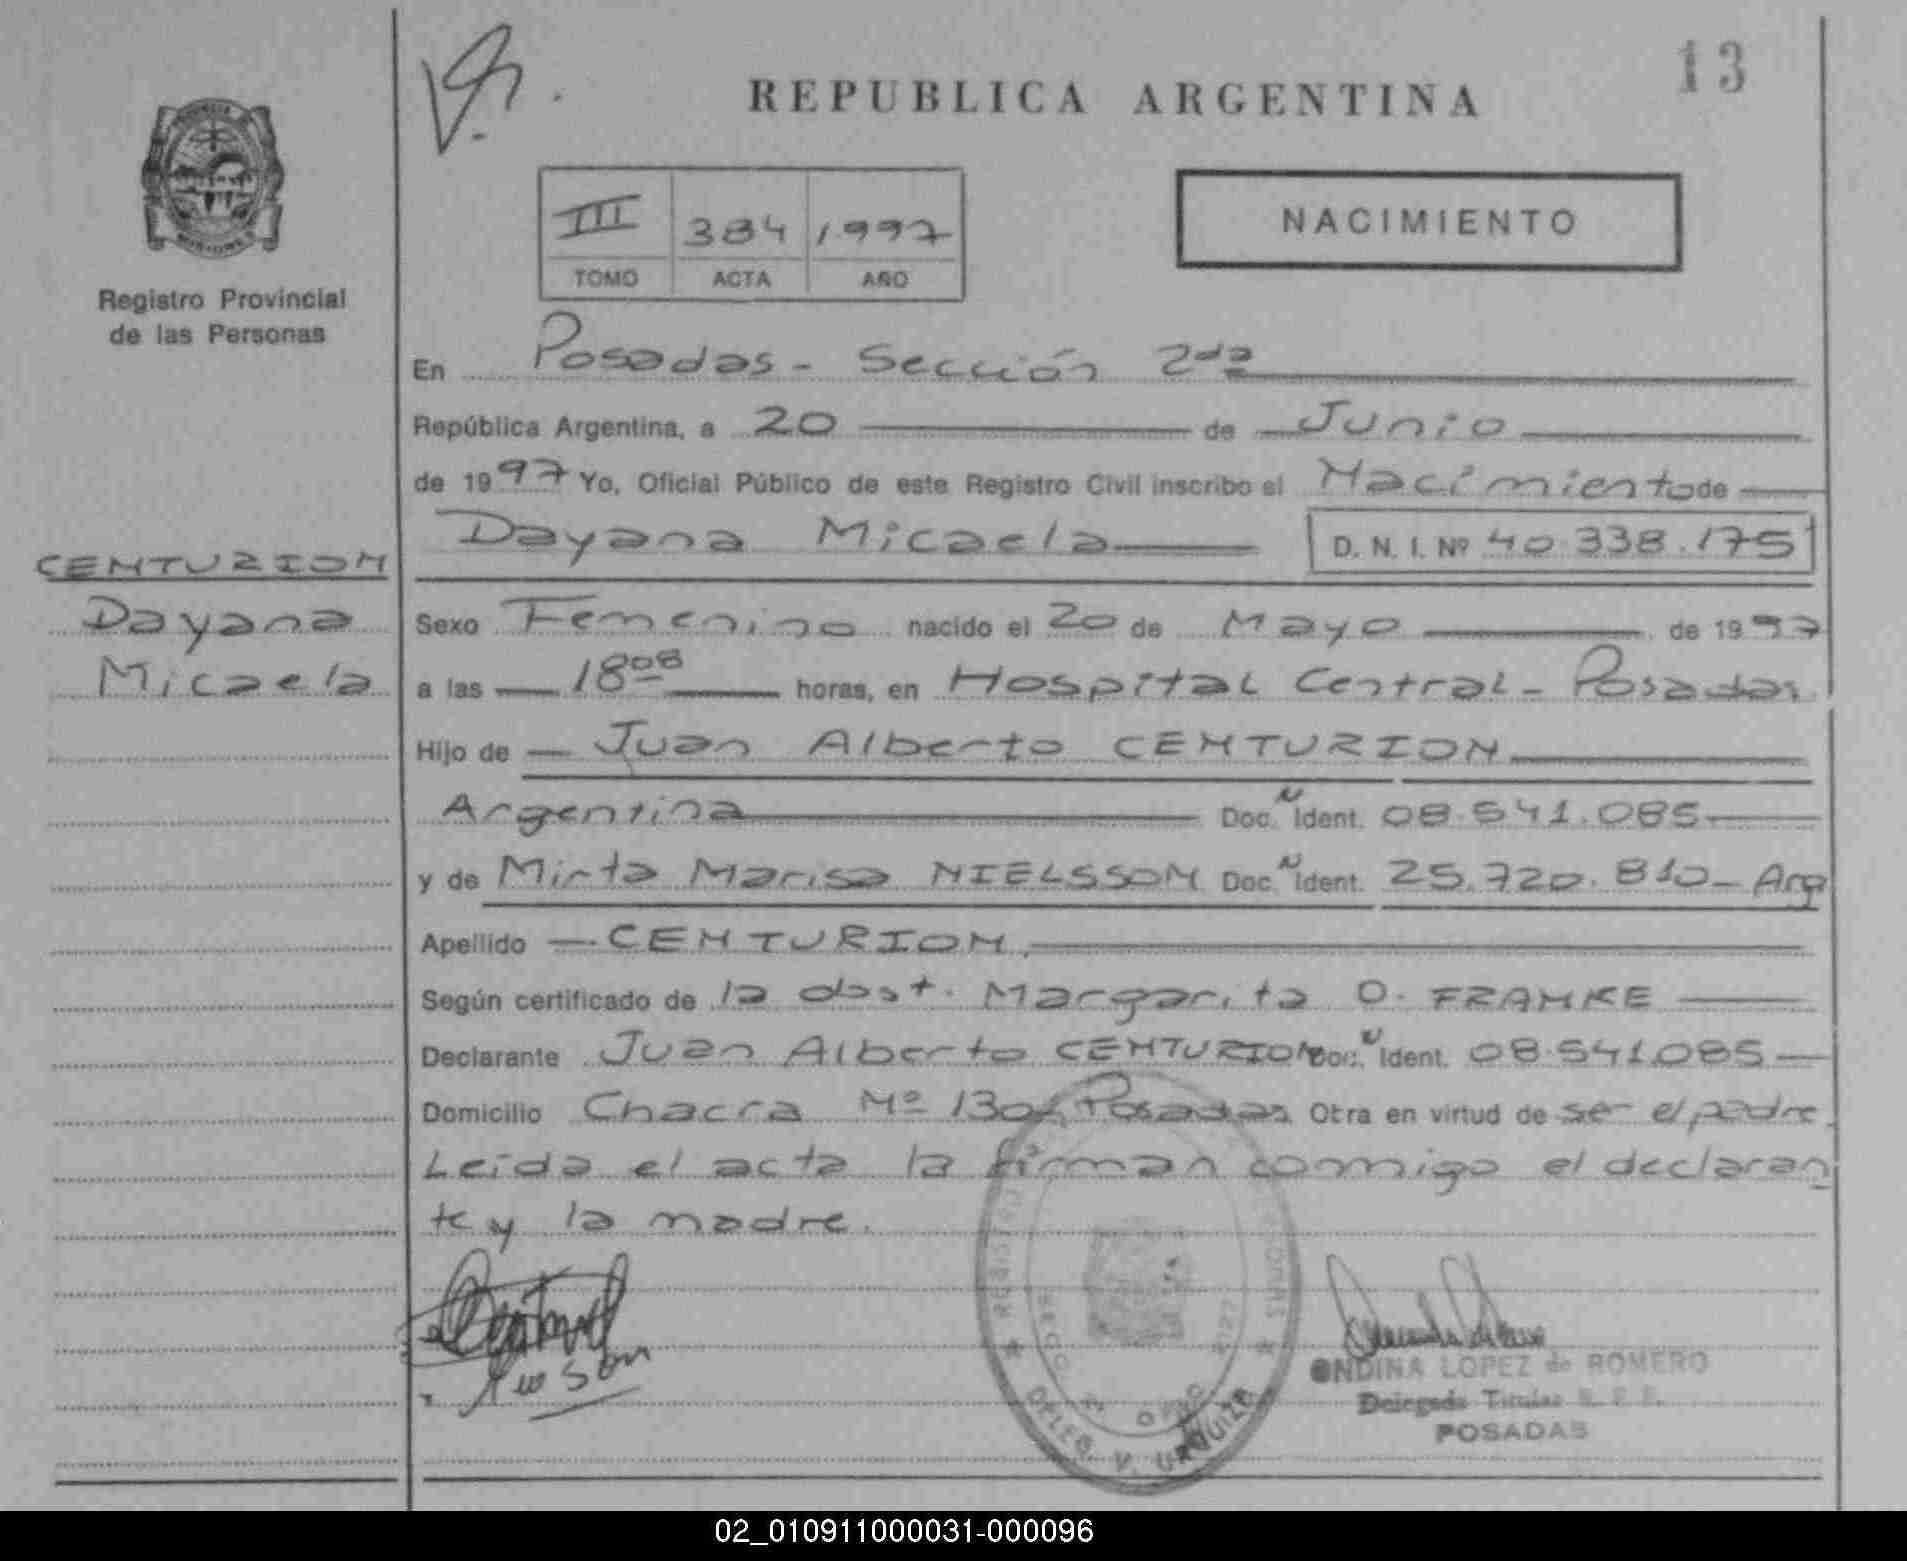 13
REPUBLICA ARGENTINA
NACIMIENTO
III 384 1997
TOMO ACTA AÑO
Registro Provincial
de las Personas
En Posadas - Sección 2da
República Argentina, a 20 de Junio
de 1997 Yo, Oficial Público de este Registro Civil inscribo el Nacimiento de
Dayana Micaela D. N. I. Nº 40.338.175
CENTURION
Dayana
Micaela
Sexo Femenino nacido el 20 de Mayo de 1997
a las 18 08 horas, en Hospital Central - Posadas
Hijo de Juan Alberto CENTURION
Argentina Doc. N Ident. 08.541.085
y de Mirta Marisa NIELSSON Doc. N Ident. 25.720.810 - Arg
Apellido CENTURION
Según certificado de la obst. Margarita O. FRANKE
Declarante Juan Alberto CENTURION Doc. N Ident. 08.541.085
Domicilio Chacra Nº 130 Posadas Otra en virtud de ser el padre
Leida el acta la firman conmigo el declaran
te y la madre.
REGISTRO
DELEG. V. URQUIZA
ONDINA LOPEZ de ROMERO
Delegada Titular R. P. P.
POSADAS
02_010911000031-000096